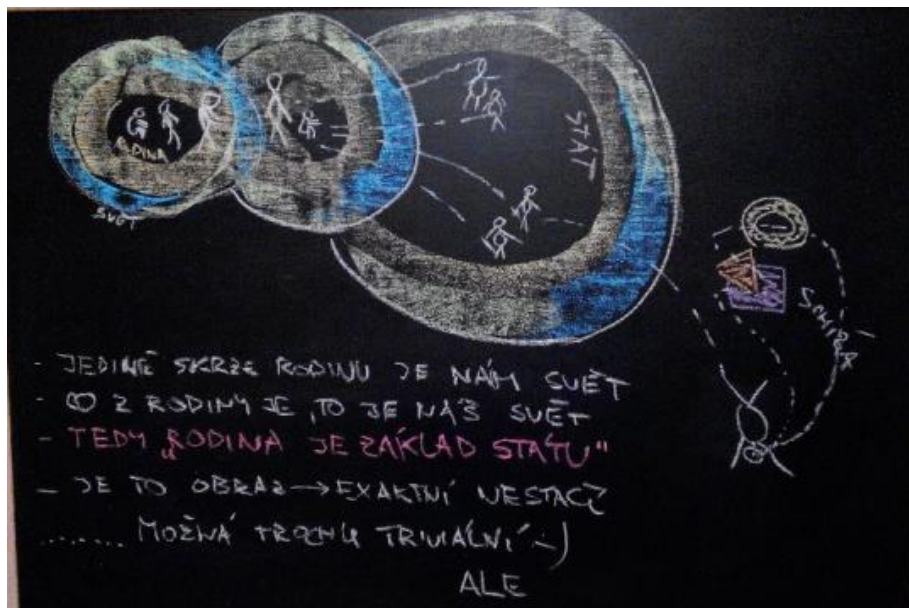 RODINA
SVĚT
STÁT
SCHÍZA
- JEDINĚ SKRZE RODINU JE NÁM SVĚT
- CO Z RODINY JE, TO JE NÁŠ SVĚT
- TEDY „RODINA JE ZÁKLAD STÁTU“
- JE TO OBRAZ → EXAKTNÍ NESTAČÍ
........ MOŽNÁ TROCHU TRIVIÁLNÍ :-)
ALE